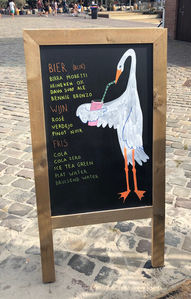 BIER (BLIK)
BIRRA MORETTI
HEINEKEN OX
OAK SUND ALE
BENNIE BRONZO
WIJN
ROSÉ
VERDEJO
PINOT NOIR
FRIS
COLA
COLA ZERO
ICE TEA GREEN
FLAT WATER
BRUISEND WATER